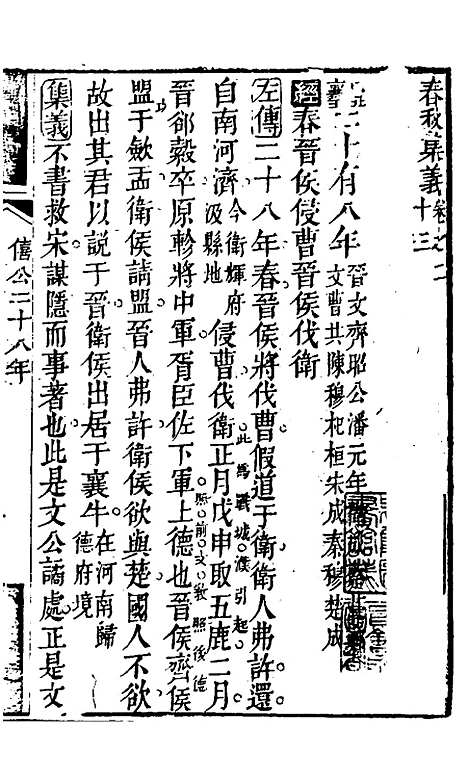 春秋集義卷之二
十三
二十有八年 晉文齊昭公潘元年
文曹共陳穆杞桓宋成秦穆楚成
經春晉侯侵曹晉侯伐衛
左傳二十八年春晉侯將伐曹假道于衛衛人弗許還
自南河濟 今衛輝府汲縣地 侵曹伐衛正月戊申取五鹿二月
此為戰城濮引起
晉郤縠卒原軫將中軍胥臣佐下軍上德也晉侯齊侯
盟于斂盂衛侯請盟晉人弗許衛侯欲與楚國人不欲
故出其君以説于晉衛侯出居于襄牛 在河南歸德府境
集義不書救宋謀隱而事著也此是文公譎處正是文
僖公二十八年